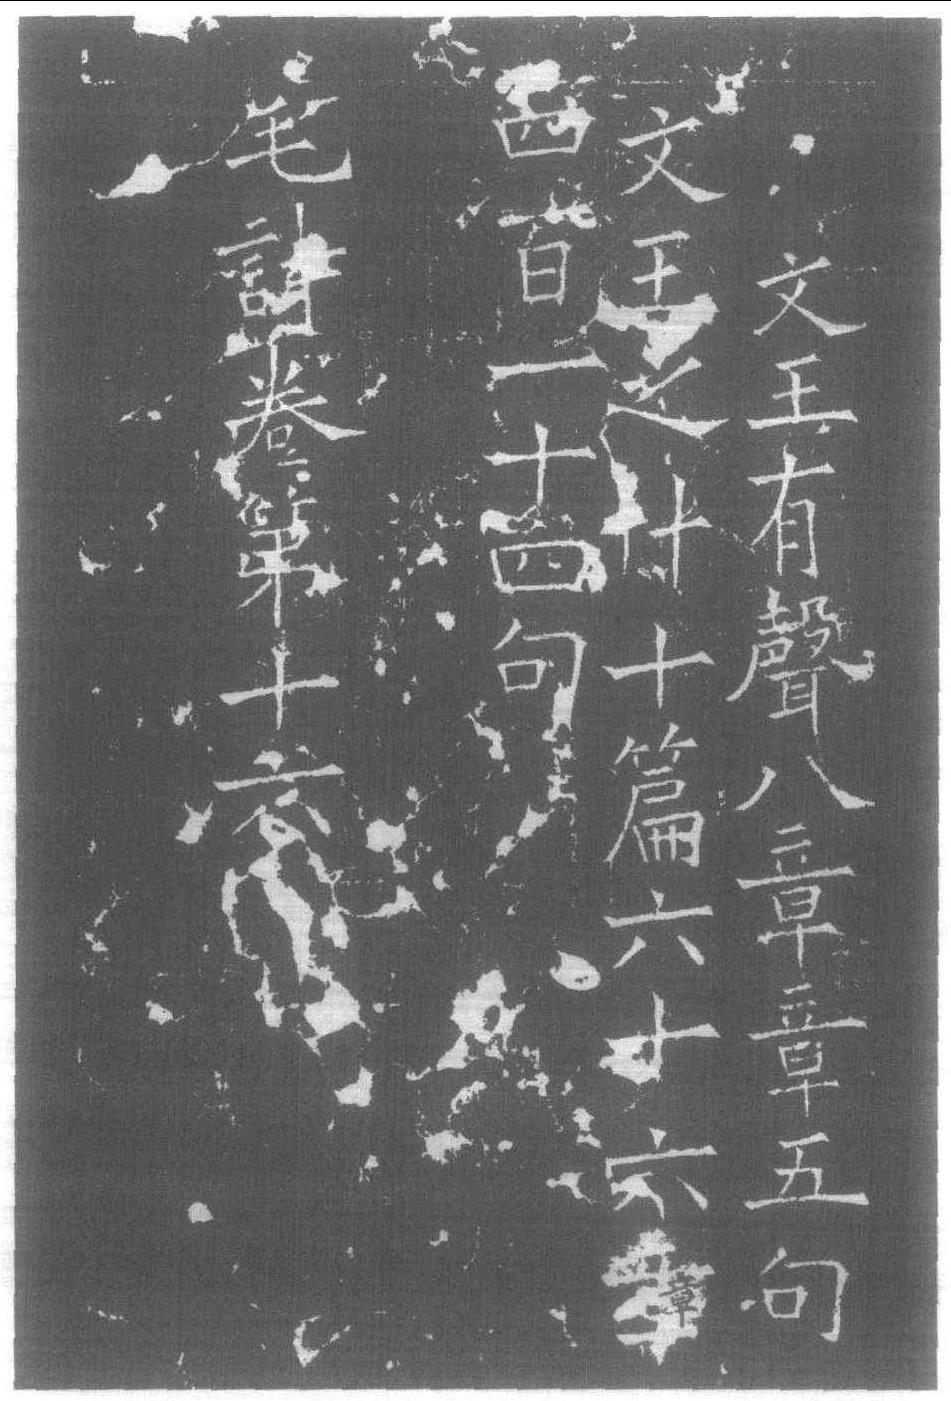 文王有聲八章章五句
文王之什十篇六十六章
四百一十四句
毛詩卷第十六